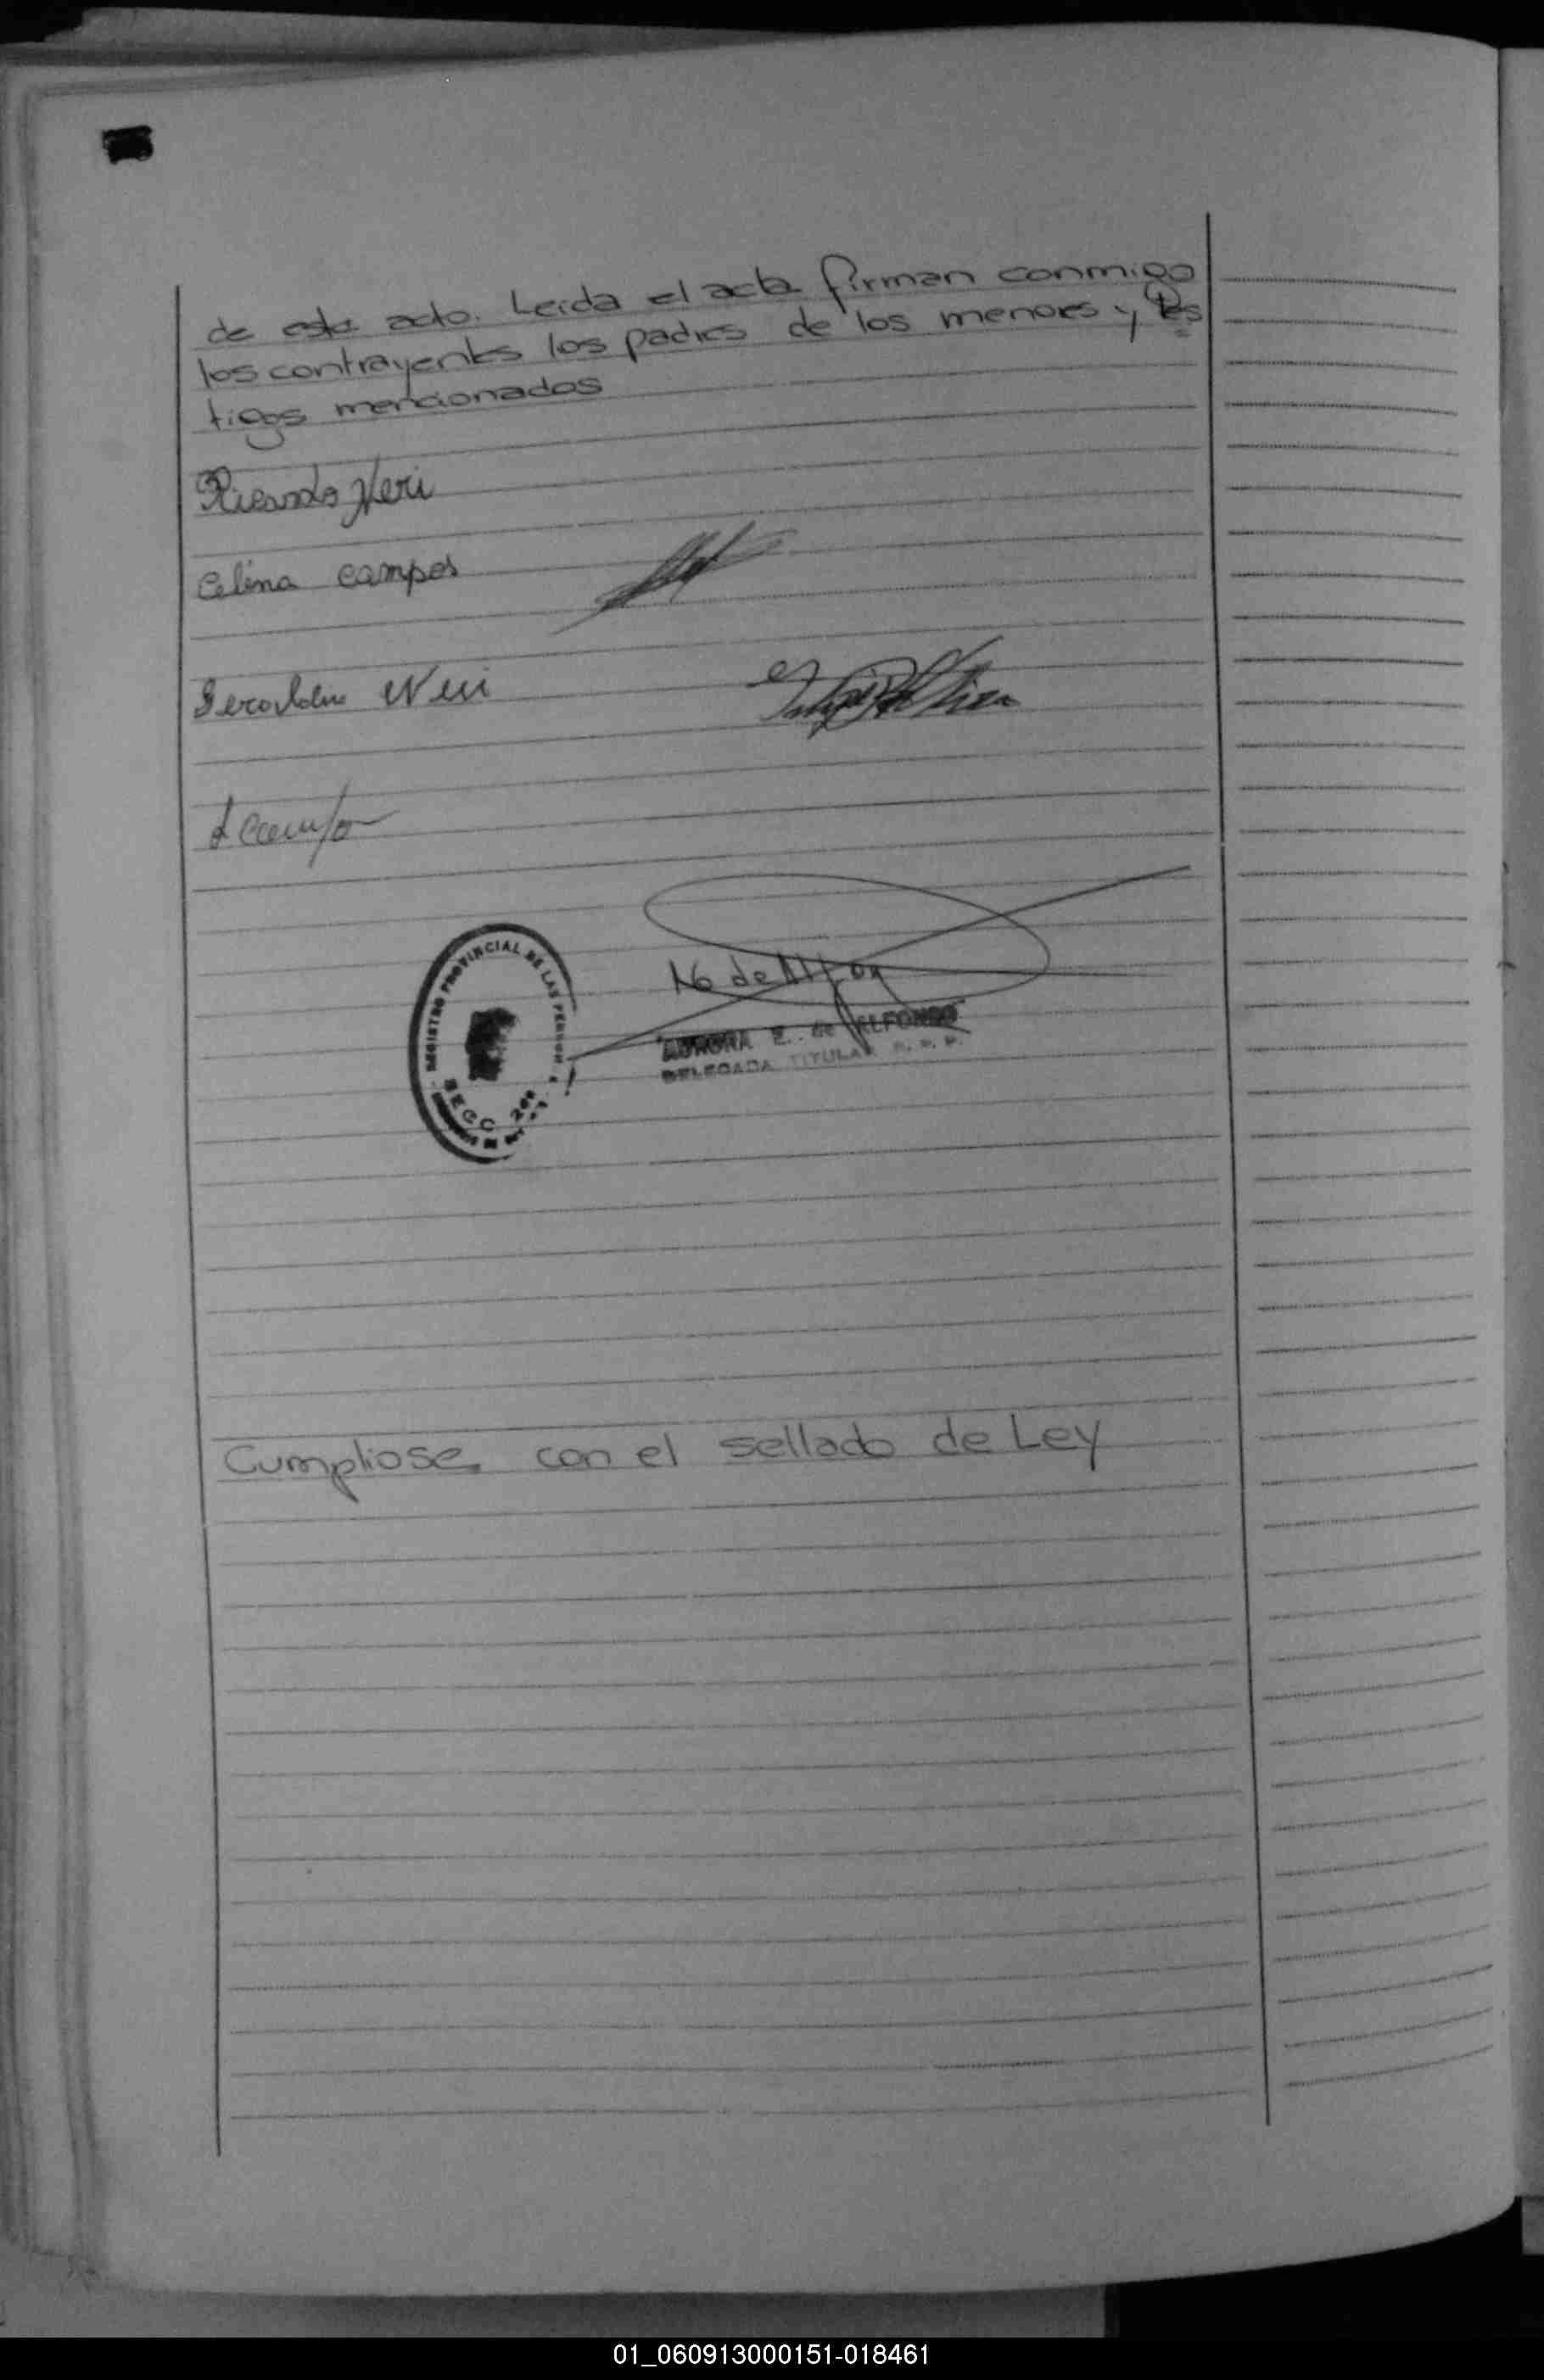 de este acto. Leida el acta firman conmigo
los contrayentes los padres de los menores y tes
tigos mencionados
Ricardo Neri
Celina Campos
Neri
REGISTRO PROVINCIAL DE LAS PERSONAS
SECC
AURORA E. de ALFONSO
DELEGADA TITULAR R. P. P.
Cumpliose con el sellado de Ley
01_060913000151-018461